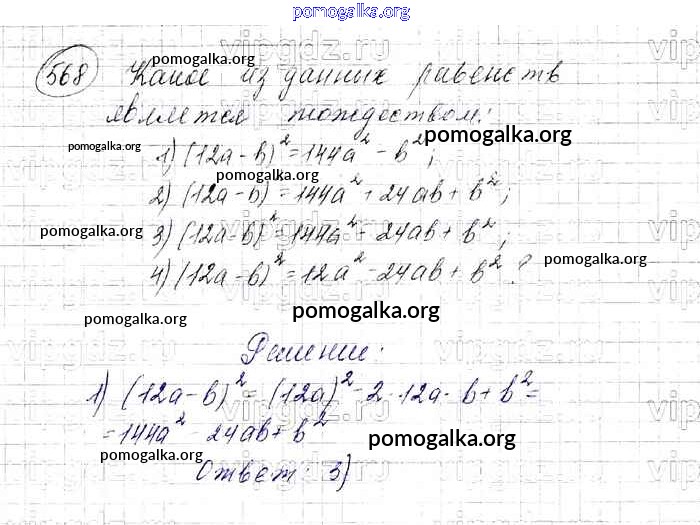 pomogalka.org
568 Какое из данных равенств
является тождеством:
1) (12a - b)² = 144a² - b²;
2) (12a - b)² = 144a² + 24ab + b²;
3) (12a - b)² = 144a² - 24ab + b²;
4) (12a - b)² = 12a² - 24ab + b²?
Решение:
1) (12a - b)² = (12a)² - 2 · 12a · b + b² =
= 144a² - 24ab + b²
Ответ: 3)
pomogalka.org
pomogalka.org
pomogalka.org
pomogalka.org
pomogalka.org
pomogalka.org
pomogalka.org
pomogalka.org
pomogalka.org
pomogalka.org
vipgdz.ru